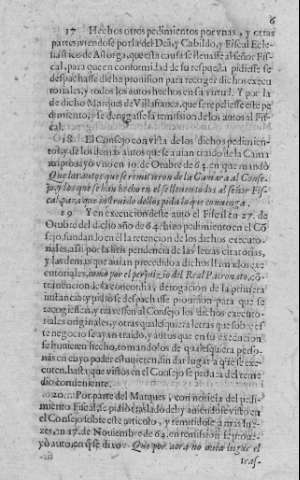 6
17 Hechos otros pedimientos por vnas, y otras
partes, viendose por la del Deã, y Cabildo, y Fiscal Ecle-
siastico de Astorga, que esta causa se lleuasse al señor Fis-
cal, para que en conformidad de su respuesta pidiesse se
despachasse dicha prouision para recoger dichos execu-
toriales, y todos los autos hechos en su virtud. Y por la
de dicho Marques de Villafranca, que se repeliesse este pe-
dimiento, y se denegasse la remission de los autos al Fis-
cal.
18 El Consejo con vista de los dichos pedimien-
tos, y de los demàs autos que se auian traido de la Cama
ra, proueyò vno en 10. de Otubre de 64. en que mandò
Que los autos que se remitieron de la Camara al Conse-
jo, y los que se han hecho en èl se lleuen todos al señor Fis-
cal, para que instruido dellos pida lo que conuenga.
19 Y en execucion deste auto el Fiscal en 27. de
Otubre del dicho año de 64. hizo pedimiento en el Cõ-
sejo, fundando en èl la retencion de los dichos executo-
riales, assi por la litis pendencia de las letras citatorias,
y las demàs que auian precedido a dichos llamados exe-
cutoriales, como por el perjuizio del Real Patronato, cõ-
trauencion de la concordia, y derogacion de la primera
instancia: y pidiò se despachasse prouision para que se
recogiessen, y traxessen al Consejo los dichos executo-
riales originales, y otras qualesquiera letras que sobre es
te negocio se ayan traido, y autos que en su execucion
se huuieren hecho, tomandolos de qualesquiera perso-
nas en cuyo poder estuuieren, sin dar lugar a que se exe-
cuten, hasta que vistos en el Consejo se prouea del reme
dio conueniente.
20 Por parte del Marques, con noticia del pedi-
miento Fiscal, se pidiò traslado del, y auiendose visto en
el Consejo sobre este articulo, y remitidose a mas jue-
zes, en 17. de Nouiembre de 64. en remission se proue-
yò auto, en q̃ se dixo: Que por aora no auia lugar el
tras-